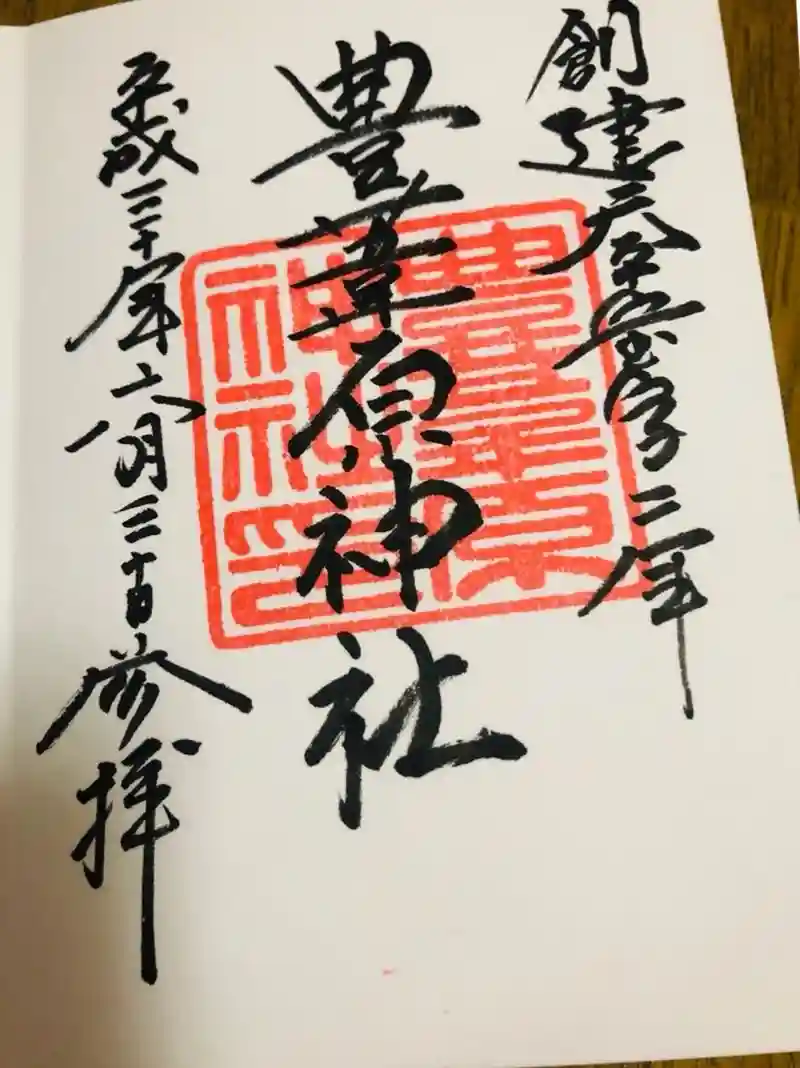 創建天平宝字二年
豊葦原神社
平成三十年六月三十日参拝
豊葦原神社印